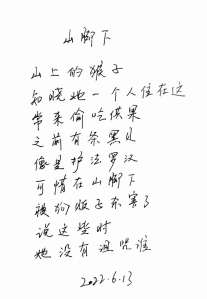 山脚下
山上的猴子
知晓她一个人住在这
常来偷吃供果
之前有条黑道
像是护法罗汉
可惜在山脚下
被狗贩子杀害了
说这些时
她没有诅咒谁
2022.6.13